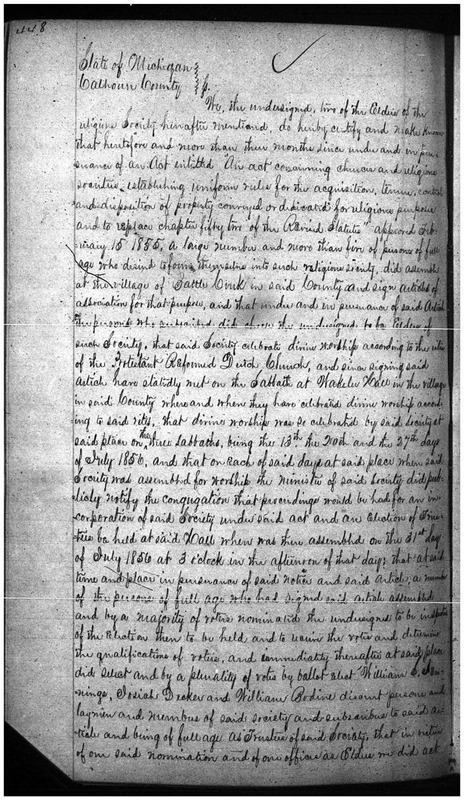 448
State of Michigan
Calhoun County } ss.
We, the undersigned, two of the Elders of the
religious Society hereinafter mentioned, do hereby certify and make known
that heretofore and more than three months since under and in pur-
suance of an Act entitled "An act concerning churches and religious
societies, establishing uniform rules for the acquisition, tenure, control
and disposition of property conveyed or dedicated for religious purposes
and to replace chapter fifty two of the Revised Statutes" approved Feb-
ruary 15 1855, a large number and more than five of persons of full
age who desired to form themselves into such religious society, did assemble
at the village of Battle Creek in said County and sign articles of
association for that purpose, and that under and in pursuance of said Article
the persons who subscribed did choose the undersigned to be Elders of
such Society, that said Society celebrate divine worship according to the rites
of the Protestant Reformed Dutch Church, and since signing said
Article have statedly met on the Sabbath at Hall in the village
in said County where and when they have celebrated divine worship accord-
ing to said rites, that divine worship was so celebrated by said society at
said place on the three Sabbaths, being the 13th the 20th and the 27th days
of July 1856, and that on each of said days at said place when said
Society was assembled for worship the minister of said Society did pub-
licly notify the congregation that proceedings would be had for an in-
corporation of said Society under said act and an Election of Trus-
tees be held at said Hall when was then assembled on the 31st day
of July 1856 at 3 o'clock in the afternoon of that day; that at said
time and place in pursuance of said notice and said Article, a number
of the persons of full age who had signed said article assembled
and by a majority of votes nominated the undersigned to be inspectors
of the Election then to be held and to receive the votes and determine
the qualifications of voters, and immediately thereafter at said place
did select and by a plurality of votes by ballot elect William
Josiah Decker and William Bodine discreet persons and
laymen and members of said society and subscribers to said ar-
ticle and being of full age as Trustees of said Society, that in virtue
of our said nomination and of our office as Elders we did act